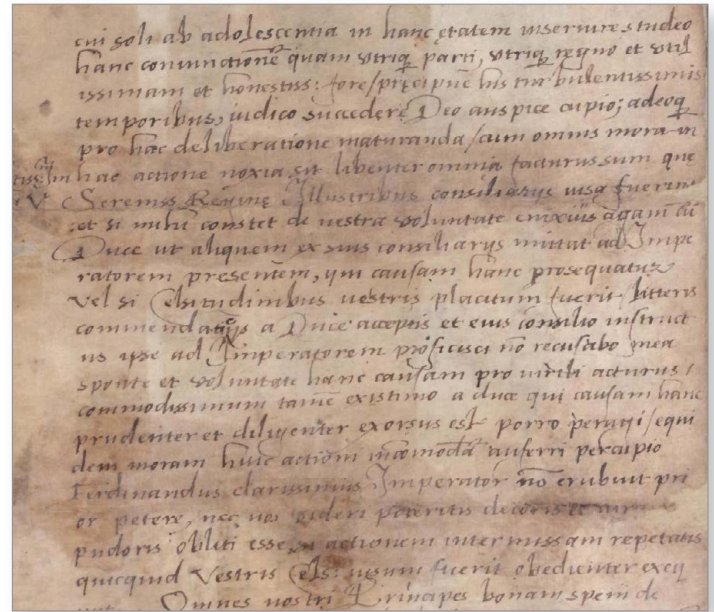 cui soli ab adolescentia in hanc ętatem inseruire studeo
hanc coniunctionē quam vtriq parti, vtriq regno et vtil
issimam et honestiss: fore/pręcipuè his turbulentissimis
temporibus, iudico succedere Deo auspice cupio; adeoq
pro hac deliberatione maturanda/cum omnis mora in
hac actione noxia sit libenter omnia facturus sum que
Sereniss Reginę Illustribus consiliarijs uisa fuerin
et si mihi constet de uestra voluntate enixiùs agam cū
Duce ut aliquem ex suis consiliarijs mittat ad Impe
ratorem presentem, qui causam hanc prosequatur
vel si Celsitudinibus uestris placitum fuerit litteris
commendatijs a Duce acceptis et eius consilio instruct
us ipse ad Imperatorem proficisci nō recusabo mea
sponte et voluntate hanc causam pro uirili acturus/
commodissimum tamē existimo a duce qui causam hanc
prudenter et diligenter exorsus est porro peragi/equi
dem moram huic actioni incōmodā auferri percupio
Ferdinandus clarissimus Imperator nō erubuit pri
or petere, nec uos uideri poteritis decoris
pudoris obliti esse si actionem intermissam repetatis
quicquid Vestris Cels: uisum fuerit obedienter exeq
Omnes nostri Principes bonam spem de